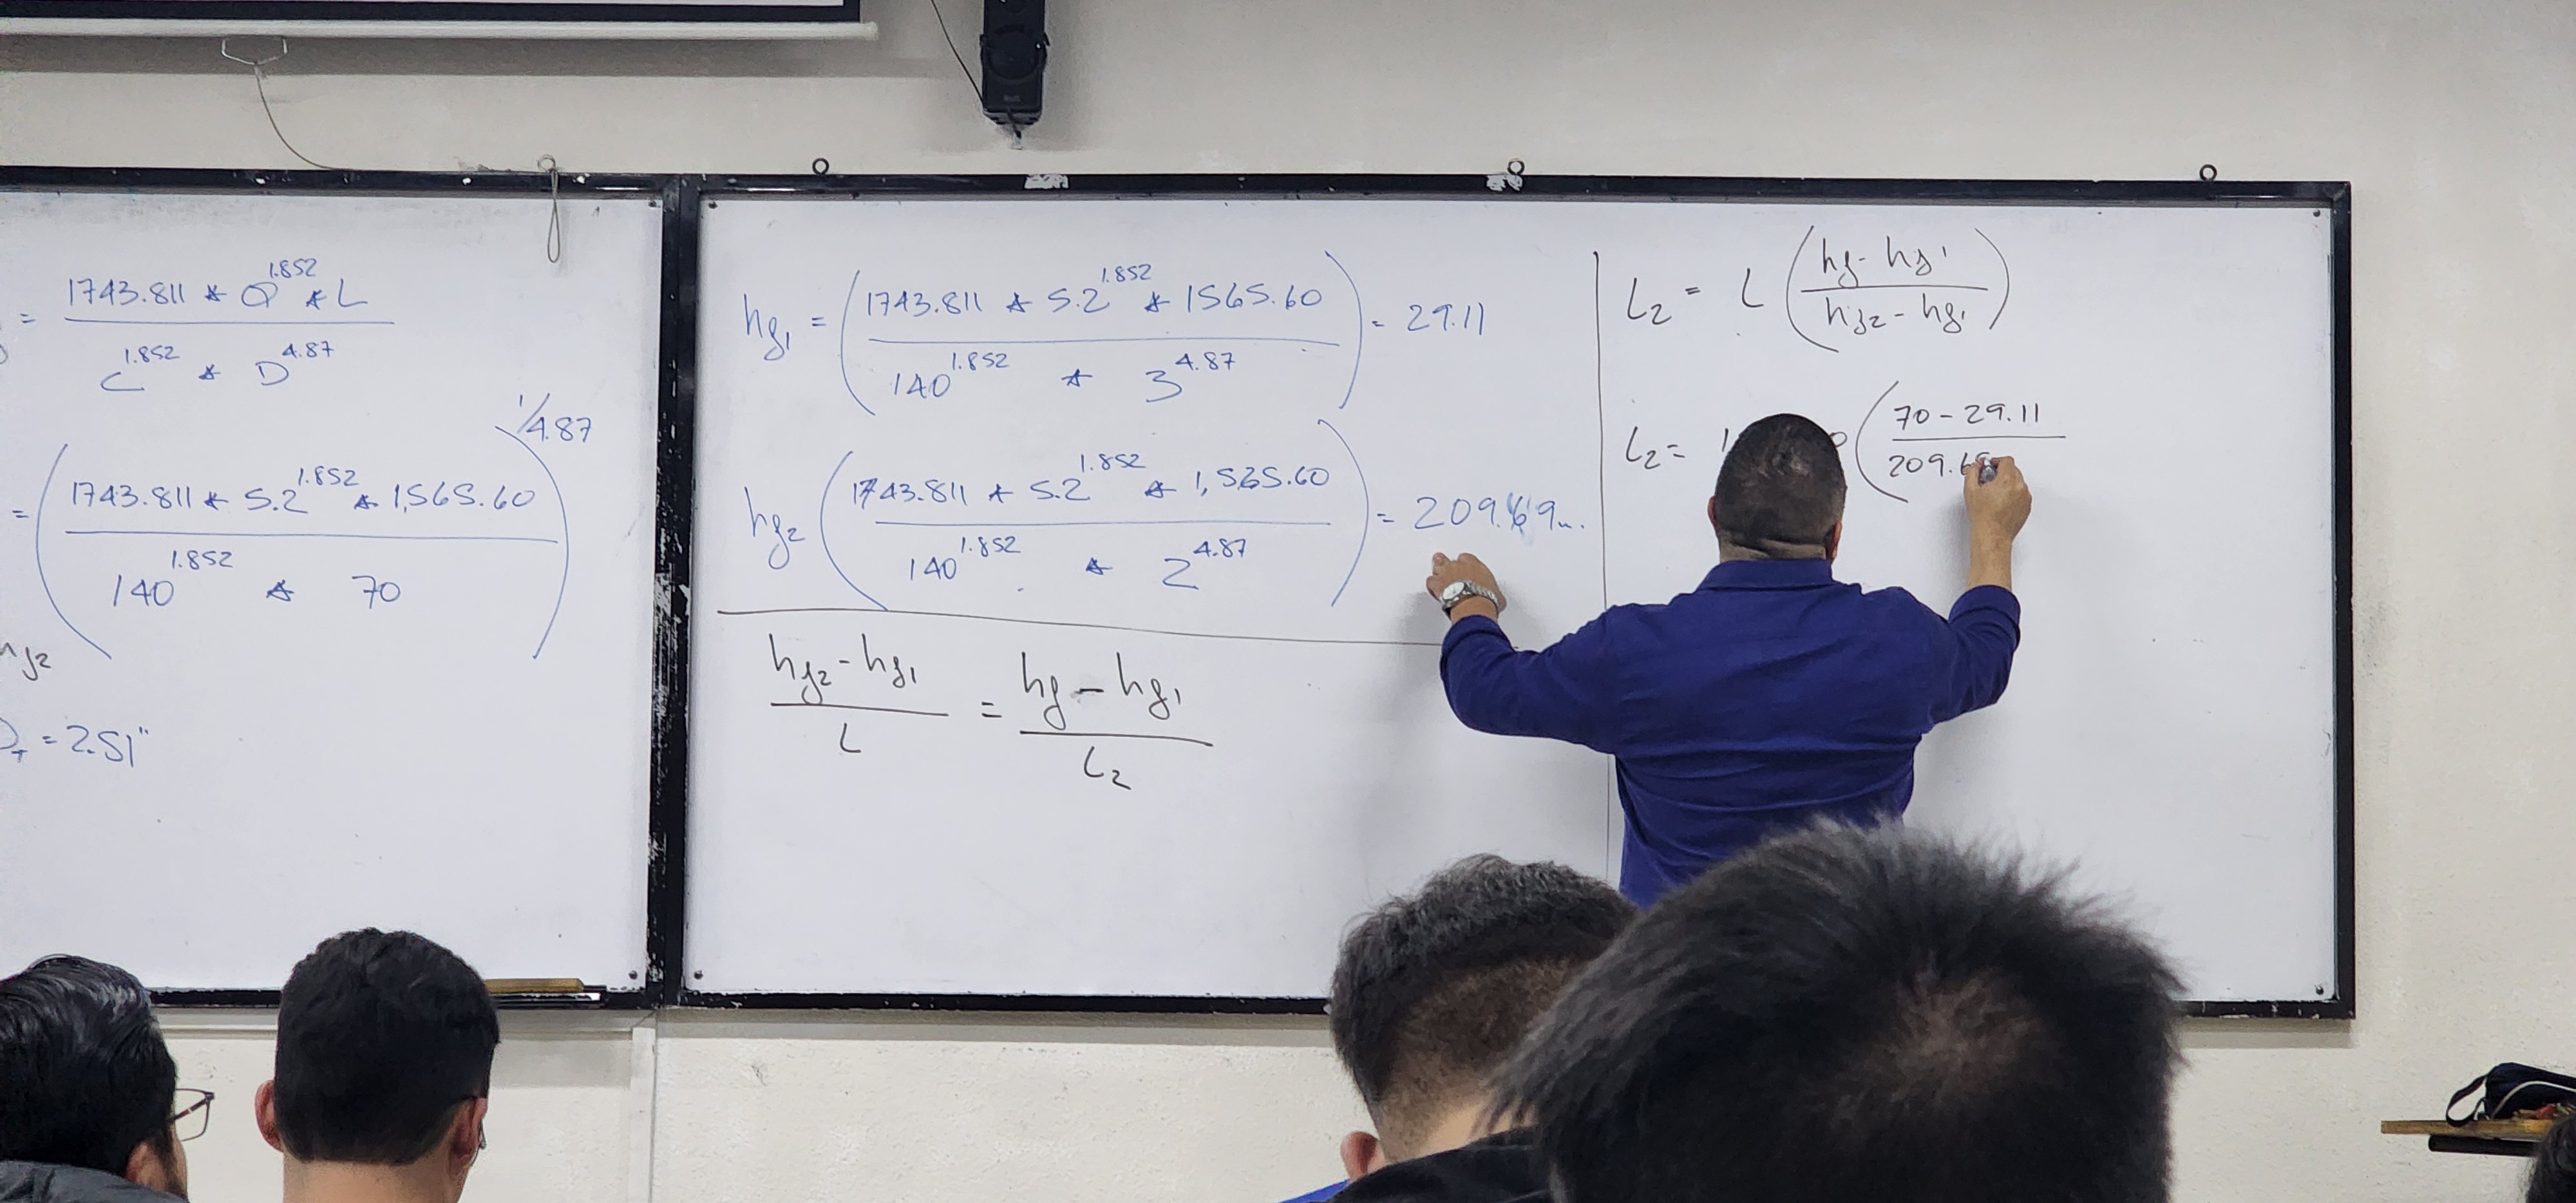 = 1743.811 * Q^1.852 * L
C^1.852 * D^4.87
= ( 1743.811 * 5.2^1.852 * 1,565.60 )^1/4.87
140^1.852 * 70
hf2
= 2.51"
hf1 = ( 1743.811 * 5.2^1.852 * 1565.60 ) = 29.11
140^1.852 * 3^4.87
hf2 ( 1743.811 * 5.2^1.852 * 1,565.60 ) = 209.69m.
140^1.852 * 2^4.87
hf2 - hf1 = hf - hf1
L L2
L2 = L ( hf - hf1 )
hf2 - hf1
L2 = ( 70 - 29.11
209.69